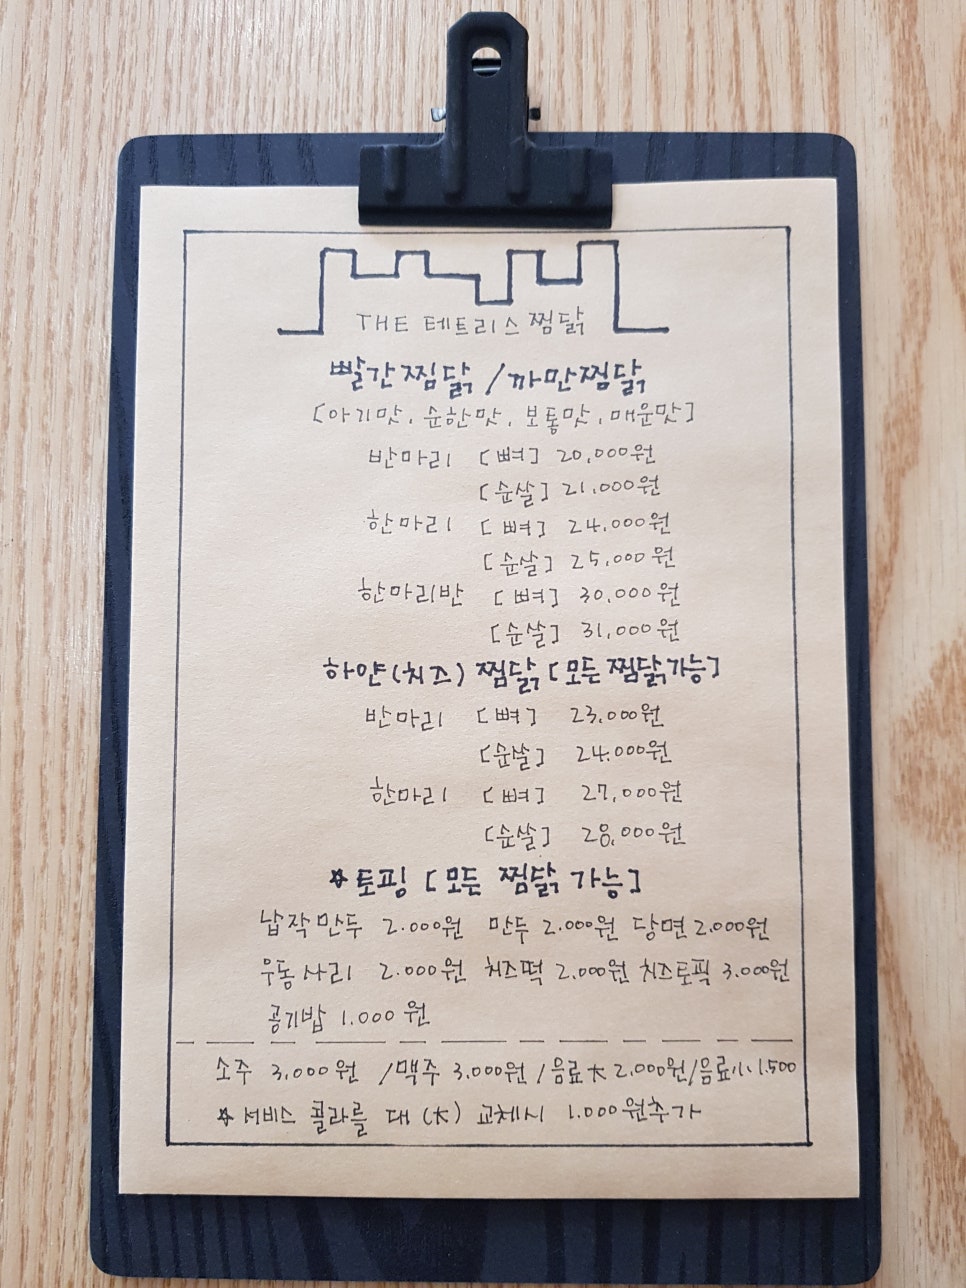 THE 테트리스 찜닭
빨간찜닭 / 까만찜닭
[아기맛, 순한맛, 보통맛, 매운맛]
반마리 [뼈] 20,000원
[순살] 21,000원
한마리 [뼈] 24,000원
[순살] 25,000원
한마리반 [뼈] 30,000원
[순살] 31,000원
하얀(치즈) 찜닭 [모든찜닭가능]
반마리 [뼈] 23,000원
[순살] 24.000원
한마리 [뼈] 27,000원
[순살] 28,000원
☆토핑 [모든 찜닭 가능]
납작만두 2.000원 만두 2.000원 당면 2.000원
우동사리 2.000원 치즈떡 2.000원 치즈토픽 3.000원
공기밥 1.000원
소주 3,000원 /맥주 3.000원 /음료大 2,000원/음료小 1.500
☆서비스 콜라를 대(大) 교체시 1.000원추가